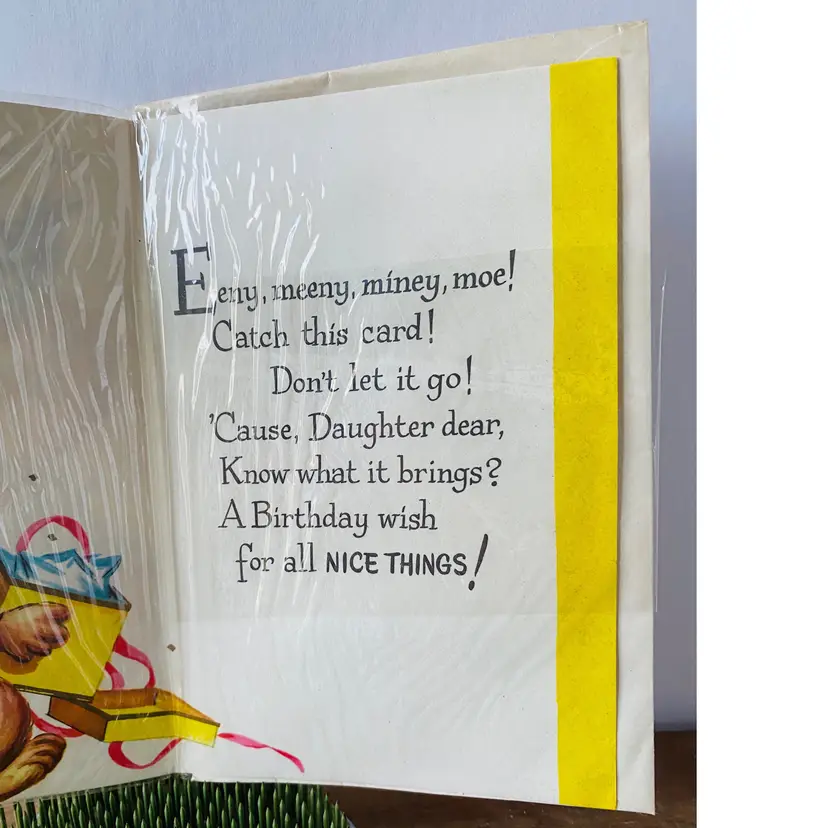 Eeny, meeny, miney, moe!
Catch this card!
Don't let it go!
'Cause, Daughter dear,
Know what it brings?
A Birthday wish
for all NICE THINGS!